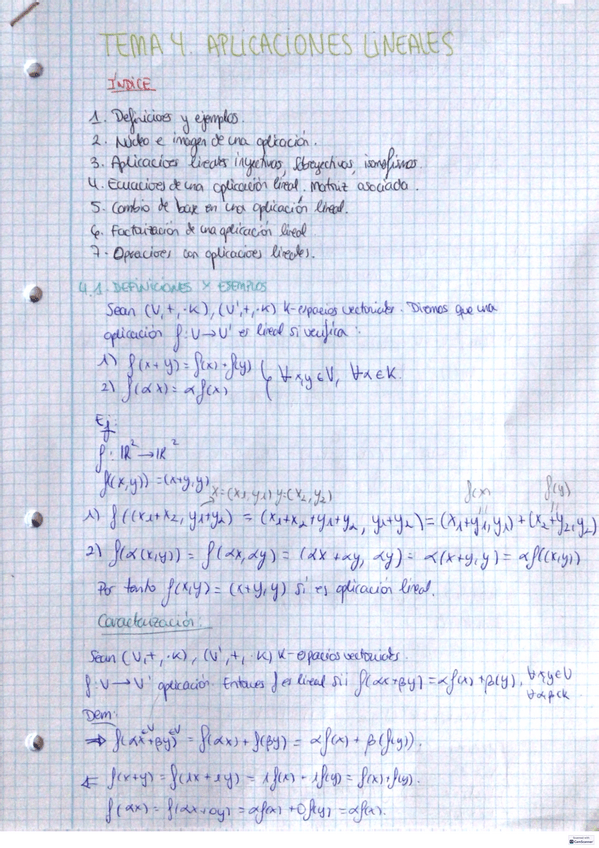 TEMA 4. APLICACIONES LINEALES
ÍNDICE
1. Definiciones y ejemplos.
2. Núcleo e imagen de una aplicación.
3. Aplicaciones lineales inyectivas, sobreyectivas, isomorfismos.
4. Ecuaciones de una aplicación lineal. Matriz asociada.
5. Cambio de base en una aplicación lineal.
6. Factorización de una aplicación lineal
7. Operaciones con aplicaciones lineales.
4.1. DEFINICIONES Y EJEMPLOS
Sean (V, +, ·K), (V', +, ·K) K-espacios vectoriales. Diremos que una
aplicación f: V → V' es lineal si verifica:
1) f(x+y) = f(x) + f(y)
2) f(αx) = αf(x)
∀x,y ∈ V, ∀α ∈ K.
Ej:
f: ℝ² → ℝ²
f((x,y)) = (x+y, y)
x=(x1,y1) y=(x2,y2)
f(x) f(y)
1) f((x1+x2, y1+y2) = (x1+x2+y1+y2, y1+y2) = (x1+y1, y1) + (x2+y2, y2)
2) f(α(x,y)) = f(αx, αy) = (αx+αy, αy) = α(x+y, y) = αf((x,y))
Por tanto f(x,y) = (x+y, y) sí es aplicación lineal.
Caracterización:
Sean (V, +, ·K), (V', +, ·K) K-espacios vectoriales.
f: V → V' aplicación. Entonces f es lineal sii f(αx+βy) = αf(x) + β(y), ∀x,y ∈ V
∀α,β ∈ K
Dem:
⇒ f(αx+βy) = f(αx) + f(βy) = αf(x) + β(f(y)).
∈V ∈V
⇐ f(x+y) = f(1x+1y) = 1f(x) + 1f(y) = f(x) + f(y).
f(αx) = f(αx+0y) = αf(x) + 0f(y) = αf(x).
CamScanner